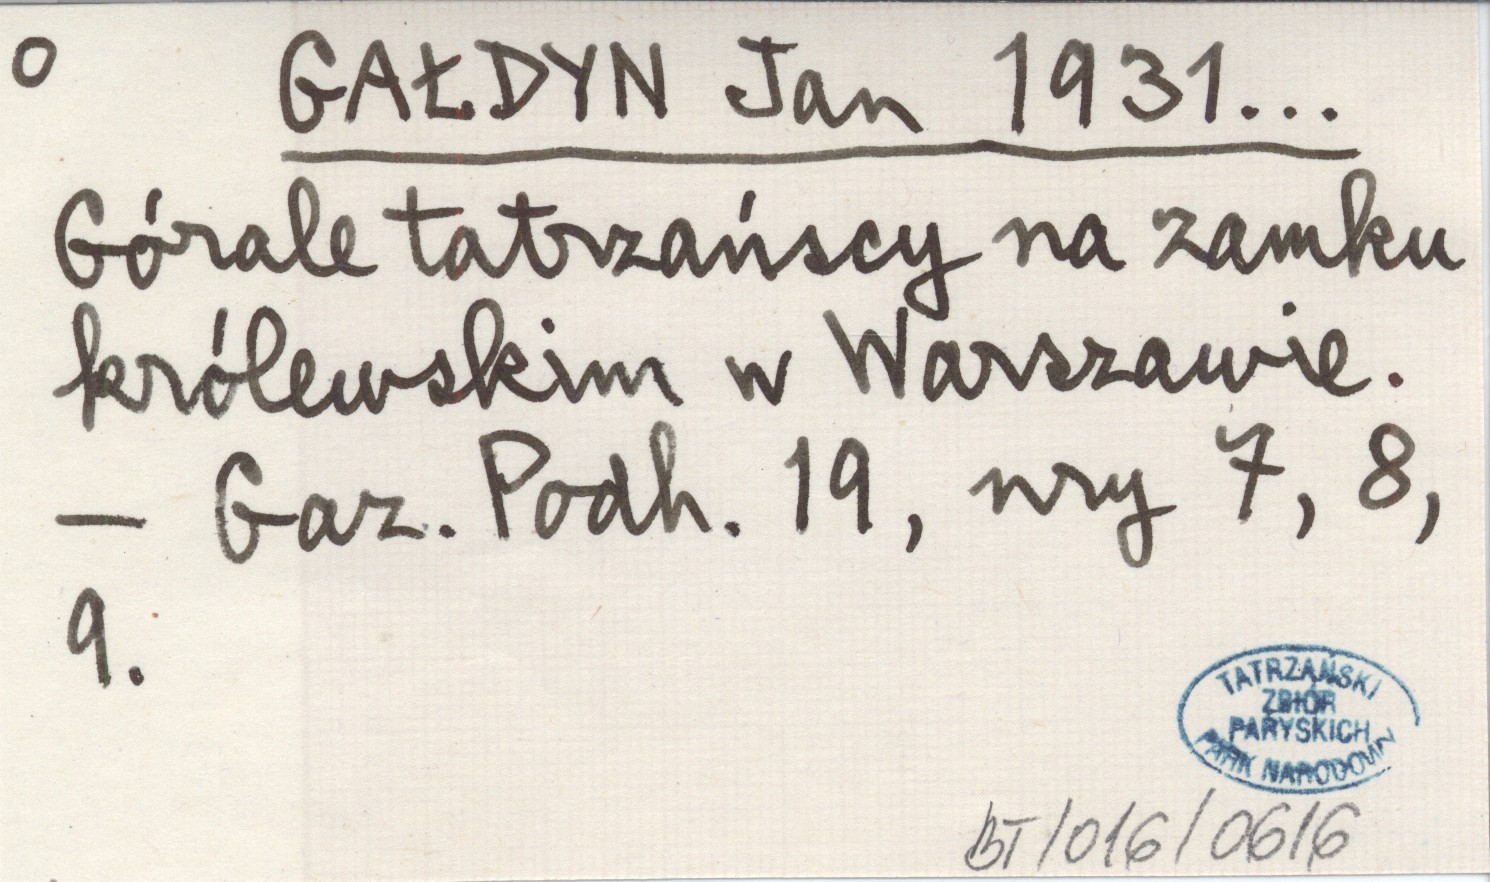 o GAŁDYN Jan 1931...
Górale tatrzańscy na zamku
królewskim w Warszawie.
— Gaz. Podh. 19, nry 7, 8,
9.
TATRZAŃSKI
ZBIÓR
PARYSKICH
PARK NARODOWY
BT/016/0616